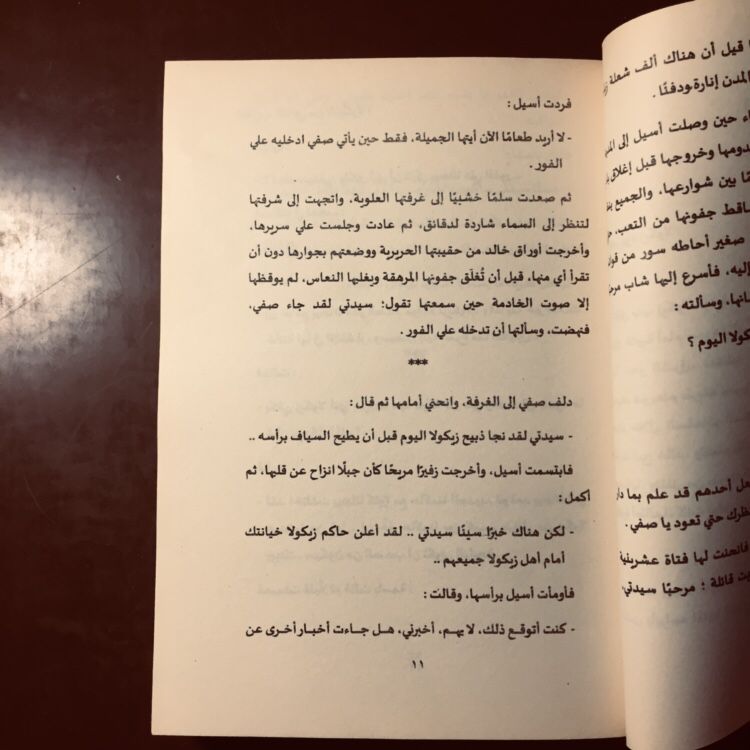 ا قيل أن هناك ألف شعلة
المدن إنارة ودفئًا .
اء حين وصلت أسيل إلى
دومها وخروجها قبل إغلاق
ـًا بين شوارعها، والجميع
ساقط جفونها من التعب،
صغير أحاطه سور من
إليه، فأسرع إليها شاب
ـانها، وسألته :
زيكولا اليوم ؟
ـعل أحدهم قد علم بما
ـنظرك حتي تعود يا صفي.
فانحنت لها فتاة عشرينية
ـت قائلة ؛ مرحبًا سيدتي
فردت أسيل :
- لا أريد طعامًا الآن أيتها الجميلة، فقط حين يأتي صفي ادخليه علي
الفور .
ثم صعدت سلمًا خشبيًا إلى غرفتها العلوية، واتجهت إلى شرفتها
لتنظر إلى السماء شاردة لدقائق، ثم عادت وجلست علي سريرها،
وأخرجت أوراق خالد من حقيبتها الحريرية ووضعتهم بجوارها دون أن
تقرأ أي منها، قبل أن تُغلَق جفونها المرهقة ويغلبها النعاس، لم يوقظها
إلا صوت الخادمة حين سمعتها تقول؛ سيدتي لقد جاء صفي،
فنهضت، وسألتها أن تدخله علي الفور .
***
دلف صفي إلى الغرفة، وانحني أمامها ثم قال :
- سيدتي لقد نجا ذبيح زيكولا اليوم قبل أن يطيح السياف برأسه ..
فابتسمت أسيل، وأخرجت زفيرًا مريحًا كأن جبلًا انزاح عن قلبها، ثم
أكمل :
- لكن هناك خبرًا سيئًا سيدتي .. لقد أعلن حاكم زيكولا خيانتك
أمام أهل زيكولا جميعهم ..
فأومأت أسيل برأسها، وقالت :
- كنت أتوقع ذلك، لا يهم، أخبرني، هل جاءت أخبار أخرى عن
١١